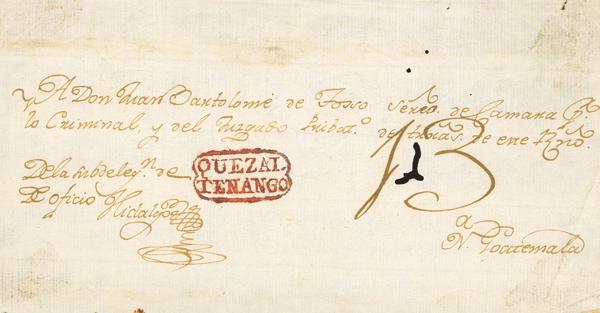 A Don Juan Bartolome de Sero. de Camara
lo Criminal, y del Juzgado Pribat.o de de este R.no
De la subdeleg.n de QUEZAL
TENANGO
De oficio Hidalgo
13
a
N. Goatemala